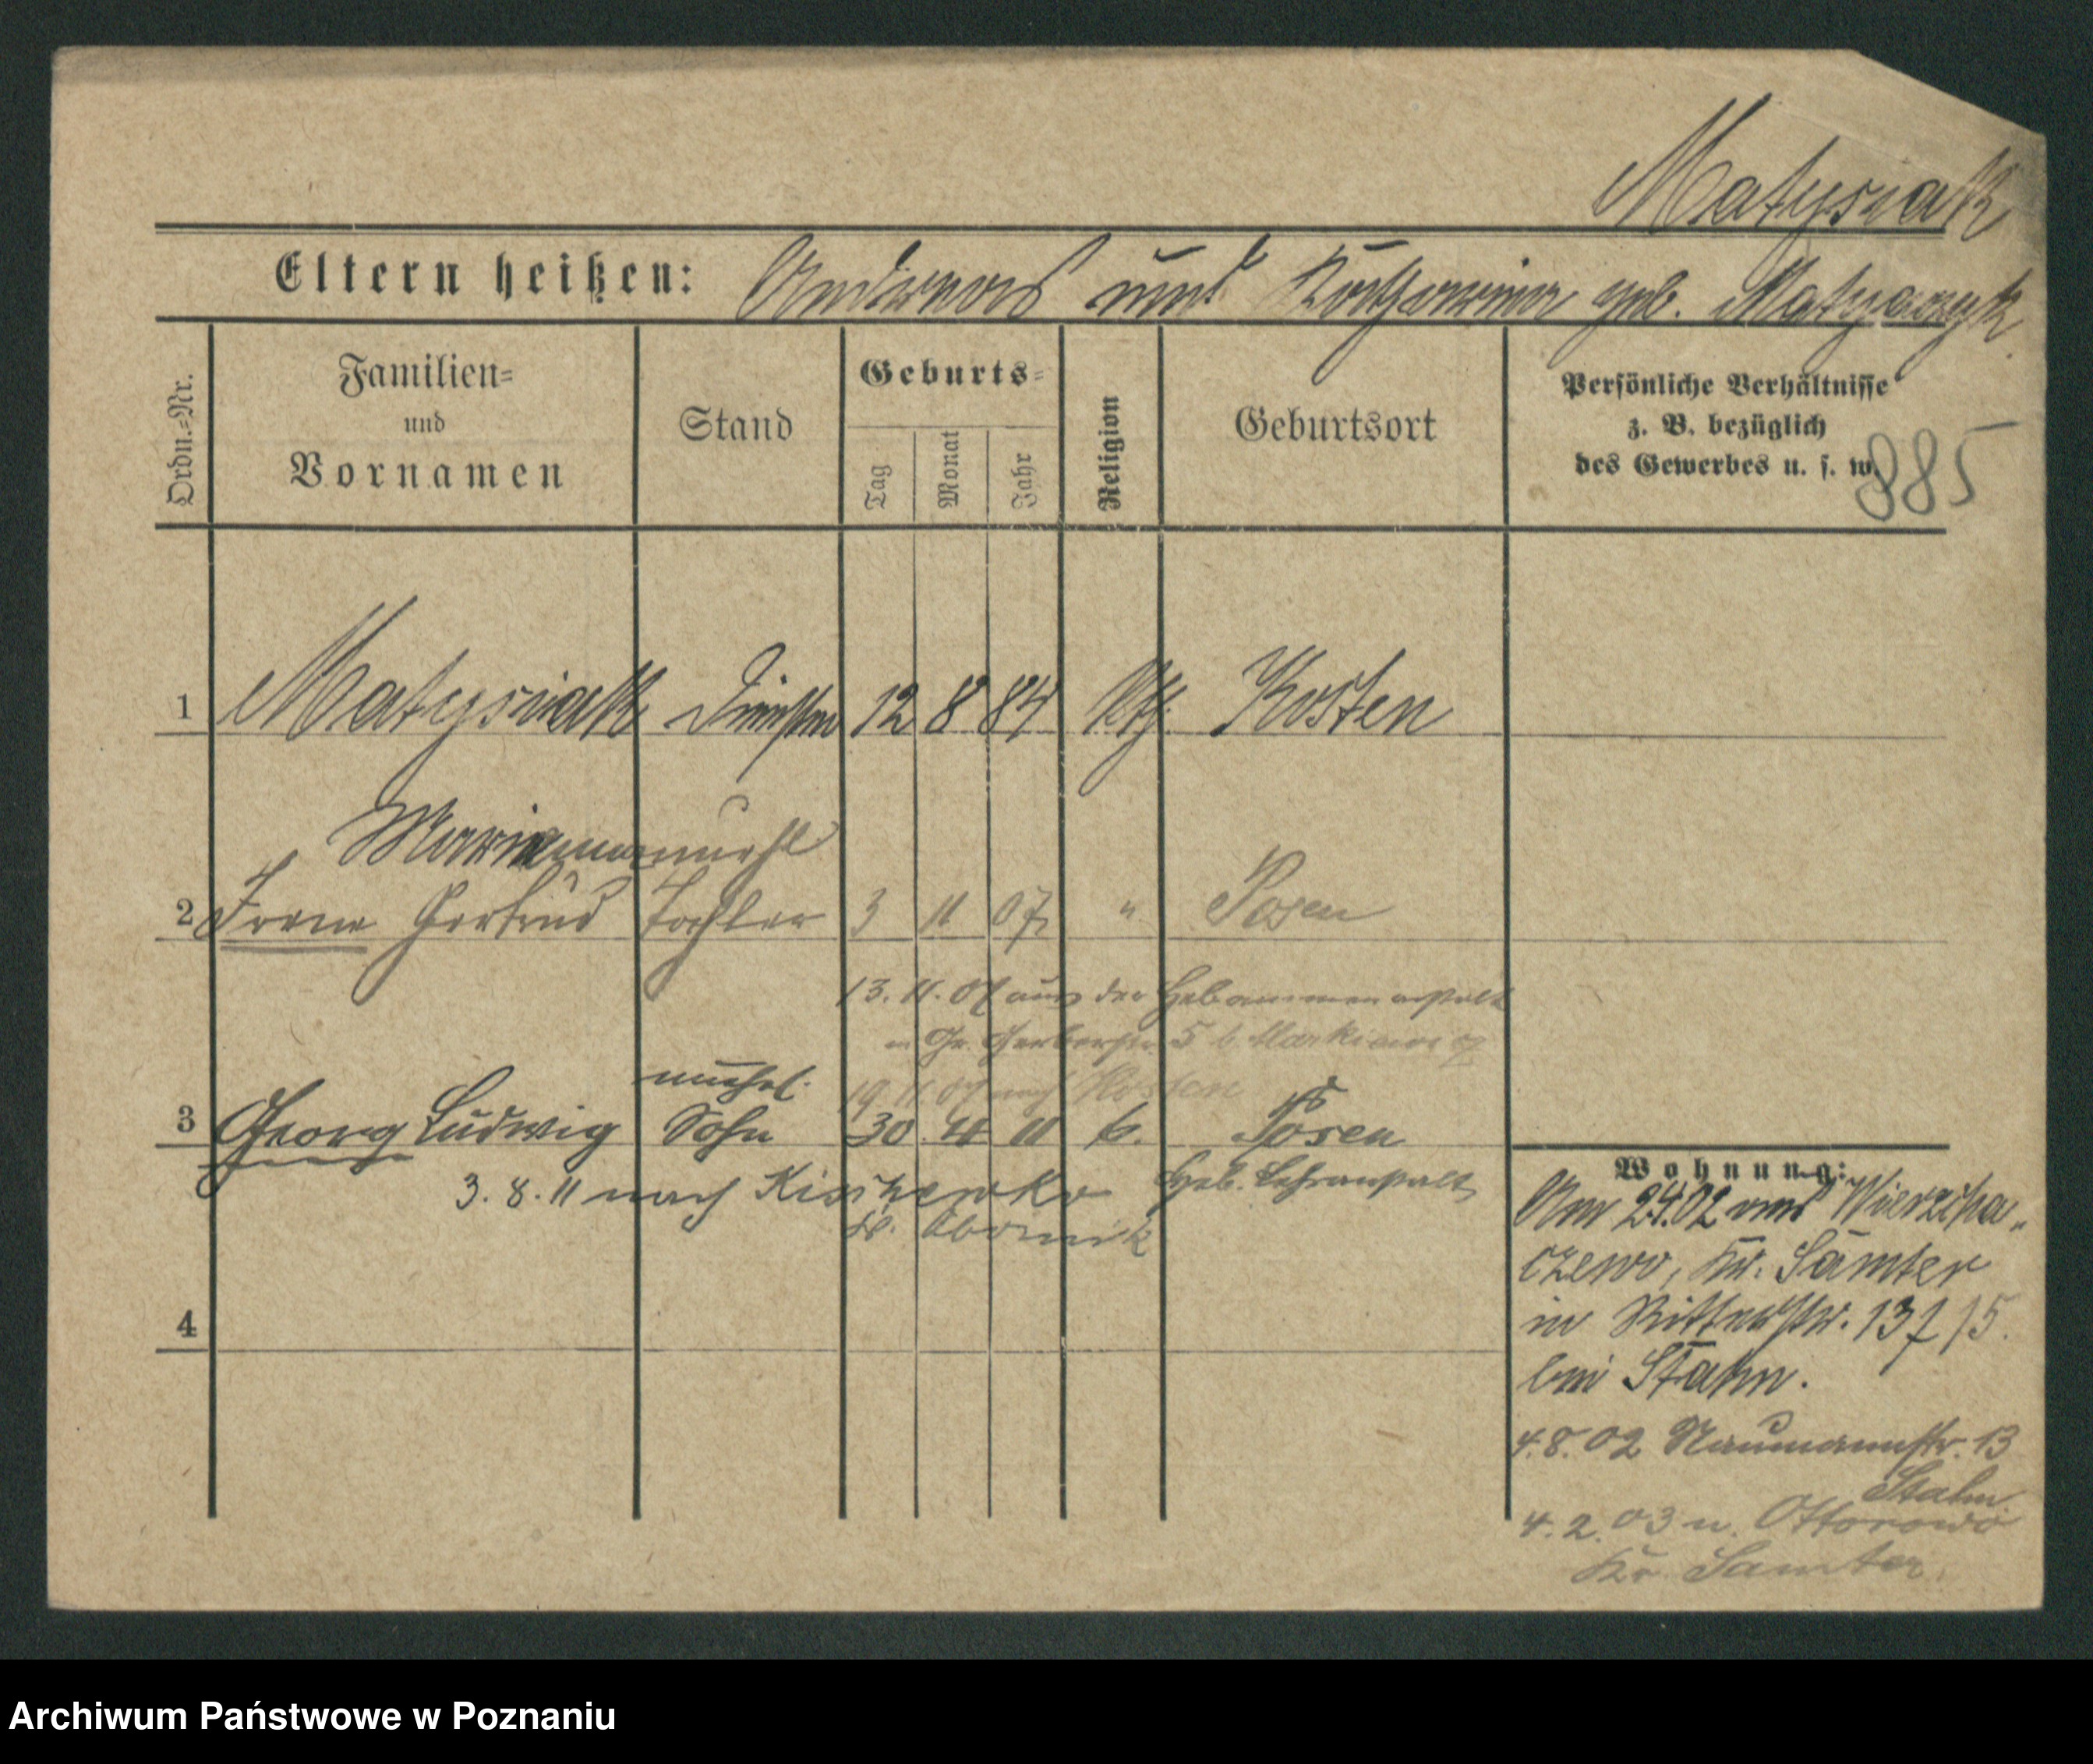 Matysiak
Eltern heißen: Andreas und Katharina geb. Matyaczyk
Ordn.=Nr.
Familien=
und
Vornamen
Stand
Geburts=
Tag
Monat
Jahr
Religion
Geburtsort
Persönliche Verhältnisse
z. B. bezüglich
des Gewerbes u. s. w.
885
1 Matysiak 12 8 84 Kth. Kosten
Marianna unehl
2 Irene Gertrud Tochter 3 11 07 " Posen
13. 11. 07 aus der Hebammenanstalt
n Gr. Gerberstr. 5 b Markiewicz
19. 11. 07 nach Kosten
unehel.
3 Georg Ludwig Sohn 30 4 11 k. Posen
3. 8. 11 nach Kischewko Heb. Lehranstalt
Kr. Obornik
4
Wohnung:
Am 2.4.02 aus Wierzcha„
czewo, Kr. Samter
in Ritterstr. 13 /15.
bei Stahn.
4. 8. 02 Naumannstr. 13
Stahn.
4. 2. 03 n. Ottorowo
Kr. Samter.
Archiwum Państwowe w Poznaniu